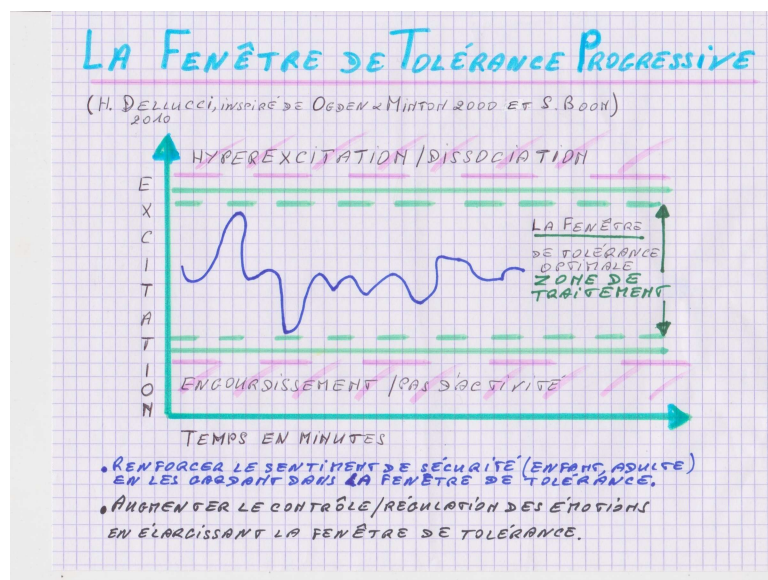 LA FENÊTRE DE TOLÉRANCE PROGRESSIVE
(H. DELLUCCI, INSPIRÉ DE OGDEN & MINTON 2000 ET S. BOON)
2010
HYPEREXCITATION/DISSOCIATION
EXCITATION
LA FENÊTRE
DE TOLÉRANCE
OPTIMALE
ZONE DE
TRAITEMENT
ENGOURDISSEMENT/PAS D'ACTIVITÉ
TEMPS EN MINUTES
• RENFORCER LE SENTIMENT DE SÉCURITÉ (ENFANT, ADULTE)
EN LES GARDANT DANS LA FENÊTRE DE TOLÉRANCE.
• AUGMENTER LE CONTRÔLE/RÉGULATION DES ÉMOTIONS
EN ÉLARGISSANT LA FENÊTRE DE TOLÉRANCE.